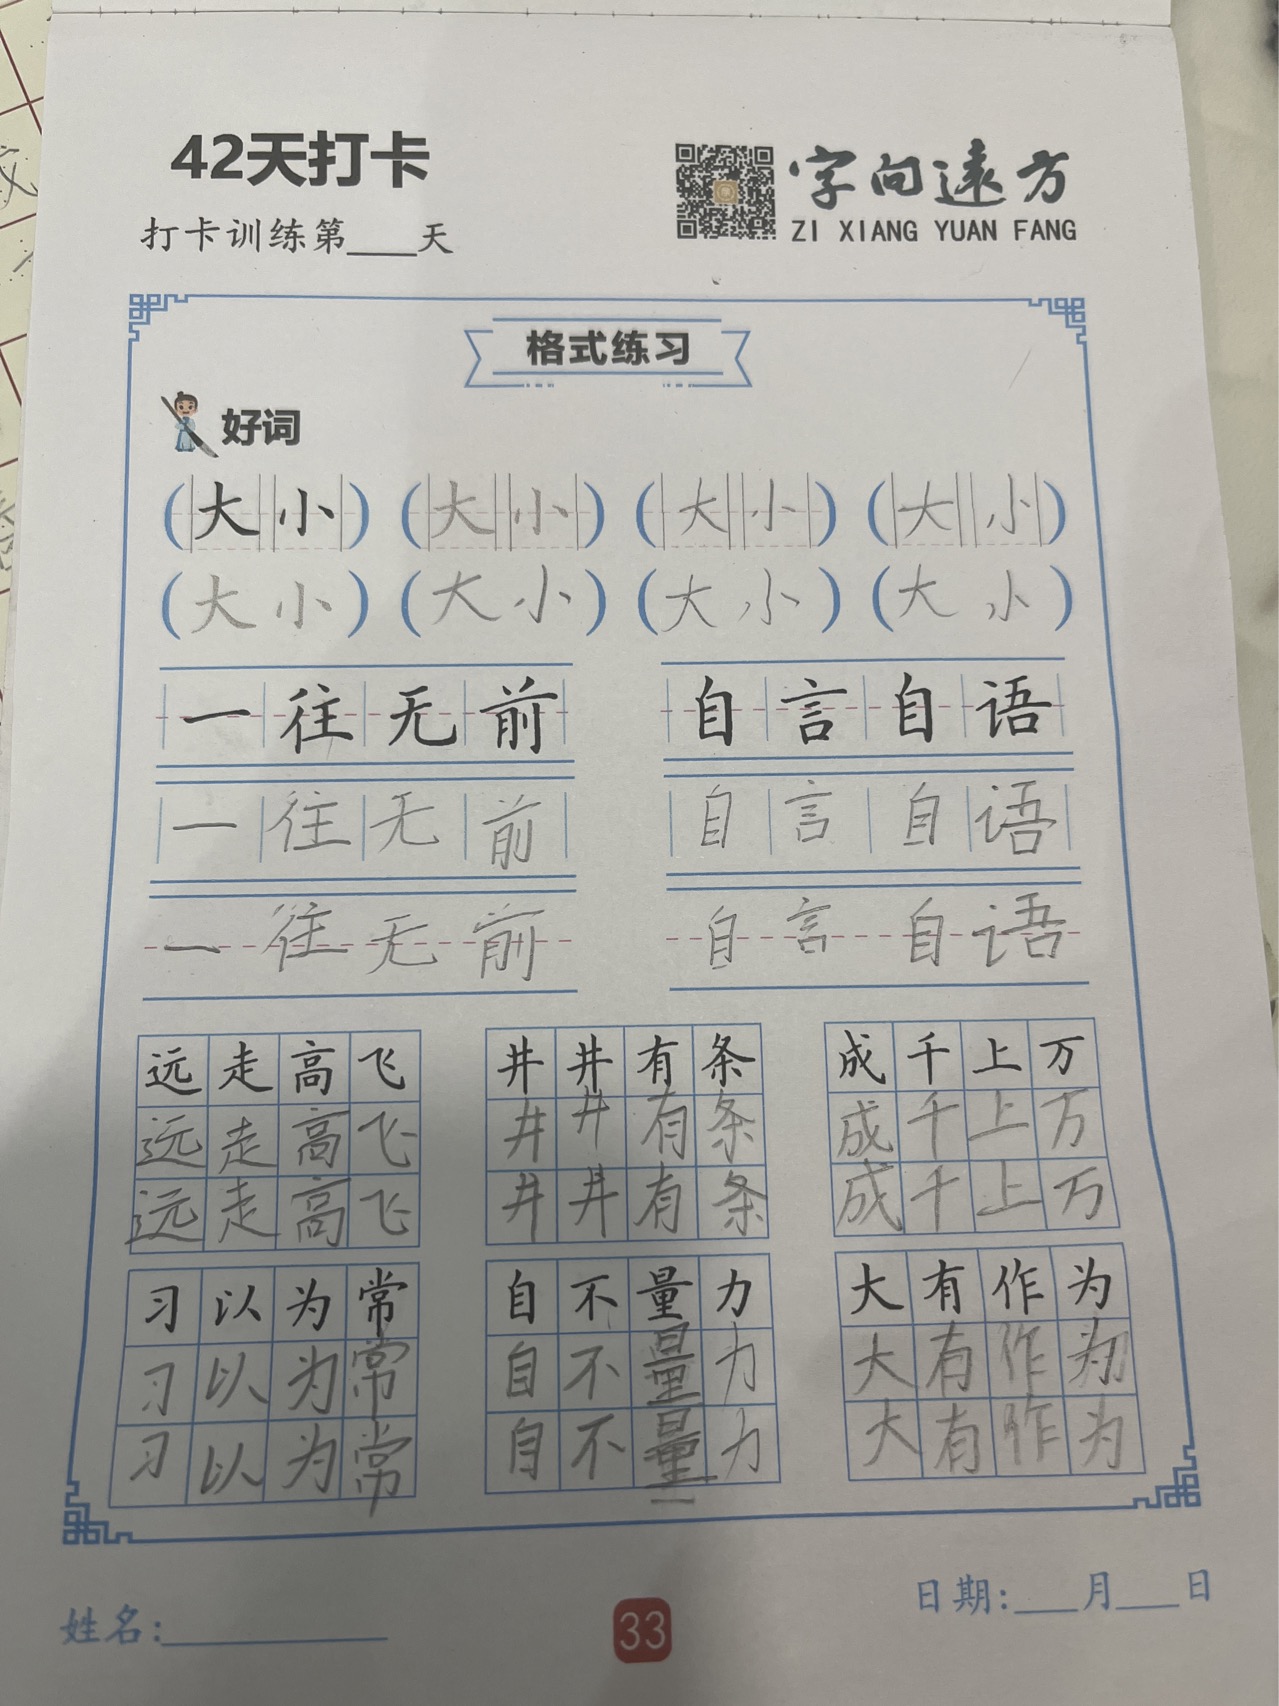 42天打卡
字向远方
打卡训练第____天
ZI XIANG YUAN FANG
格式练习
好词
(大小) (大小) (大小) (大小)
(大小) (大小) (大小) (大小)
一往无前 自言自语
一往无前 自言自语
一往无前 自言自语
远走高飞 井井有条 成千上万
远走高飞 井井有条 成千上万
远走高飞 井井有条 成千上万
习以为常 自不量力 大有作为
习以为常 自不量力 大有作为
习以为常 自不量力 大有作为
姓名:____________ 33 日期:____月____日